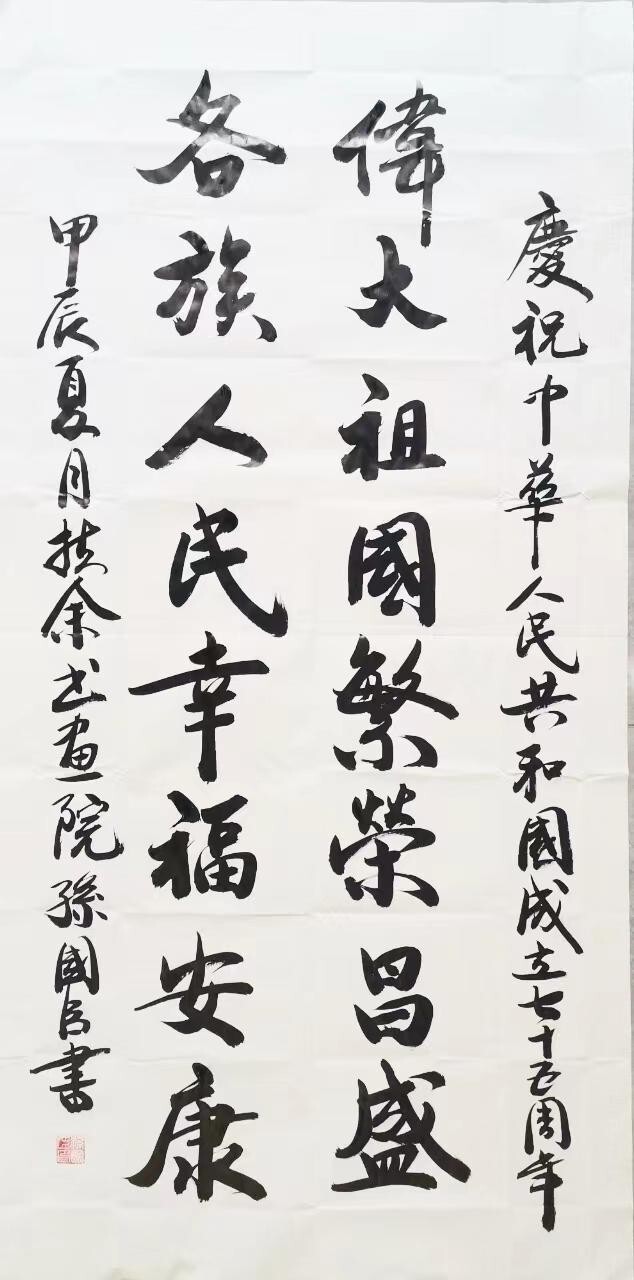 慶祝中華人民共和國成立七十五周年
偉大祖國繁榮昌盛
各族人民幸福安康
甲辰夏月扶余书画院孫國臣書